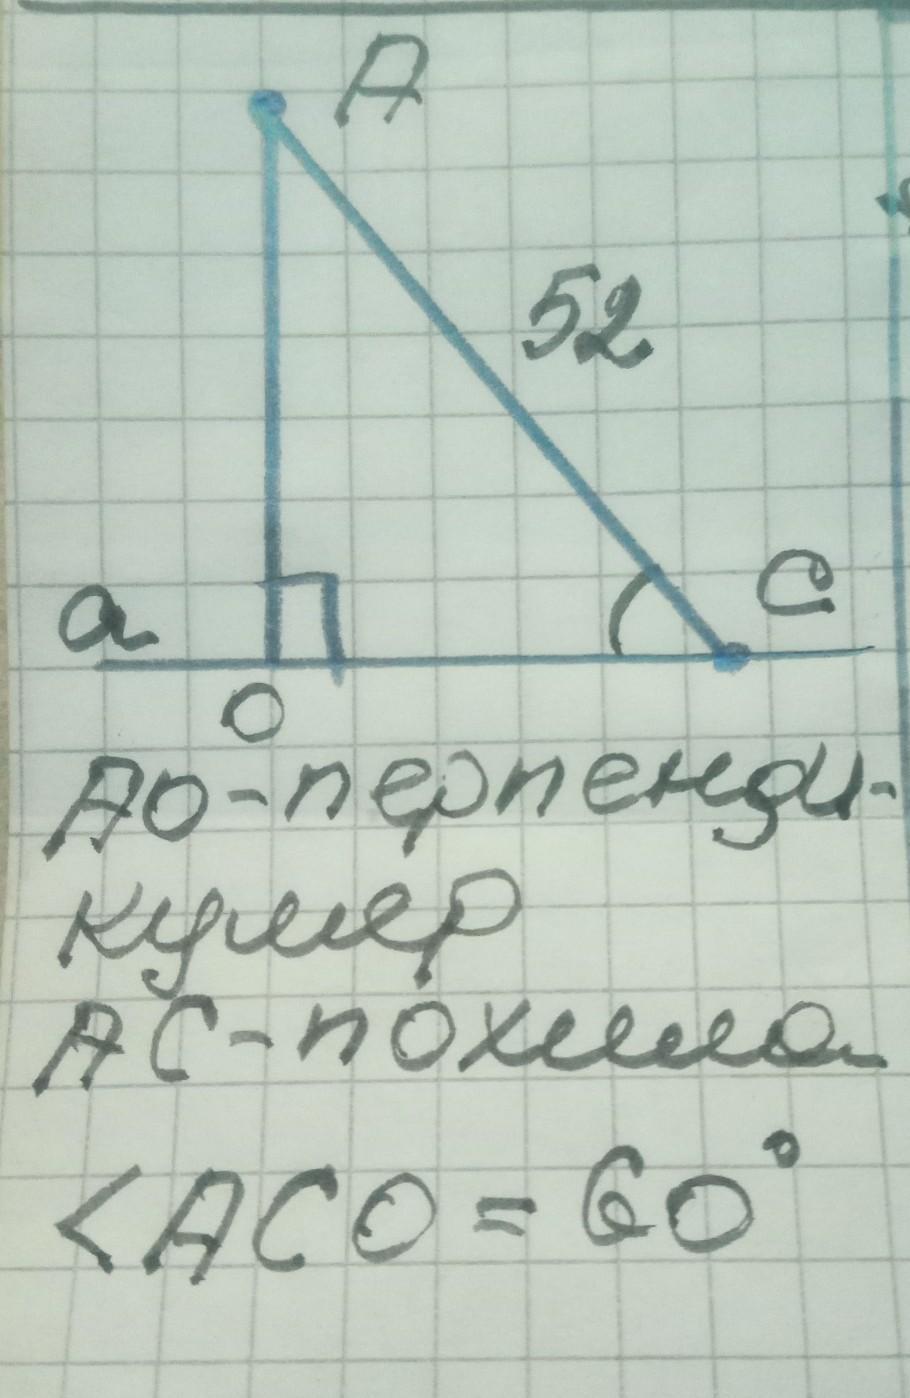 A
52
C
a
O
AO-перпенди-
куляр
AC-похила
<ACO=60°